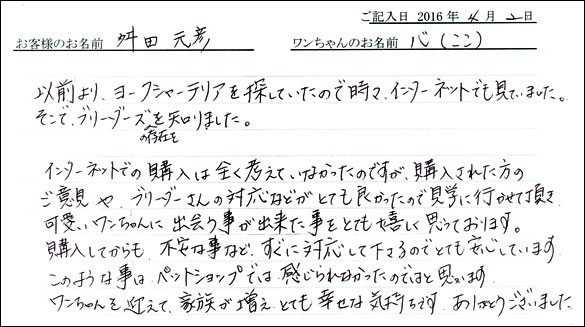 ご記入日 2016年 4月 2日
お客様のお名前 舛田 元彦 ワンちゃんのお名前 心(ここ)
以前より、ヨークシャーテリアを探していたので時々、インターネットでも見ていました。
そこで、ブリーダーズの存在を知りました。
インターネットでの購入は全く考えていなかったのですが、購入された方の
ご意見や、ブリーダーさんの対応などがとても良かったので見学に行かせて頂き
可愛いワンちゃんに出会う事が出来た事をとても嬉しく思っております。
購入してからも、不安な事など、すぐに対応して下さるのでとても安心しています
このような事はペットショップでは感じられなかったのではと思います
ワンちゃんを迎えて、家族が増えとても幸せな気持ちです。ありがとうございました